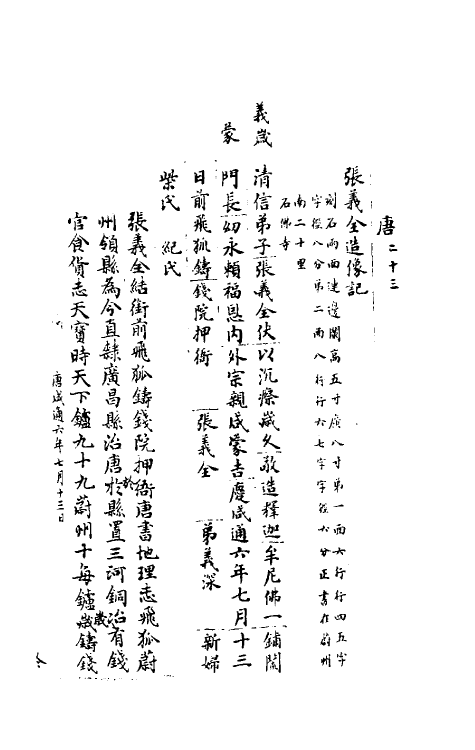 唐二十三
張義全造像記
刻石兩面連邊闊高五寸廣八寸第一面六行行四五字
字徑八分第二面八行行六七字字徑六分正書在蔚州
南二十里
石佛寺
義 歲
清信弟子張義全伏以沉瘵歲久敬造釋迦牟尼佛一鋪闔
蒙
門長幼永賴福恩内外宗親咸蒙吉慶咸通六年七月十三
日前飛狐鑄錢院押衙 張義全 弟義深 新婦
柴氏 紀氏
張義全結銜前飛狐鑄錢院押衙唐書地理志飛狐蔚
州領縣為今直隸廣昌縣治唐於縣置三河銅冶有錢
官食貨志天寶時天下鑪九十九蔚州十每鑪歲鑄錢
唐咸通六年七月十三日